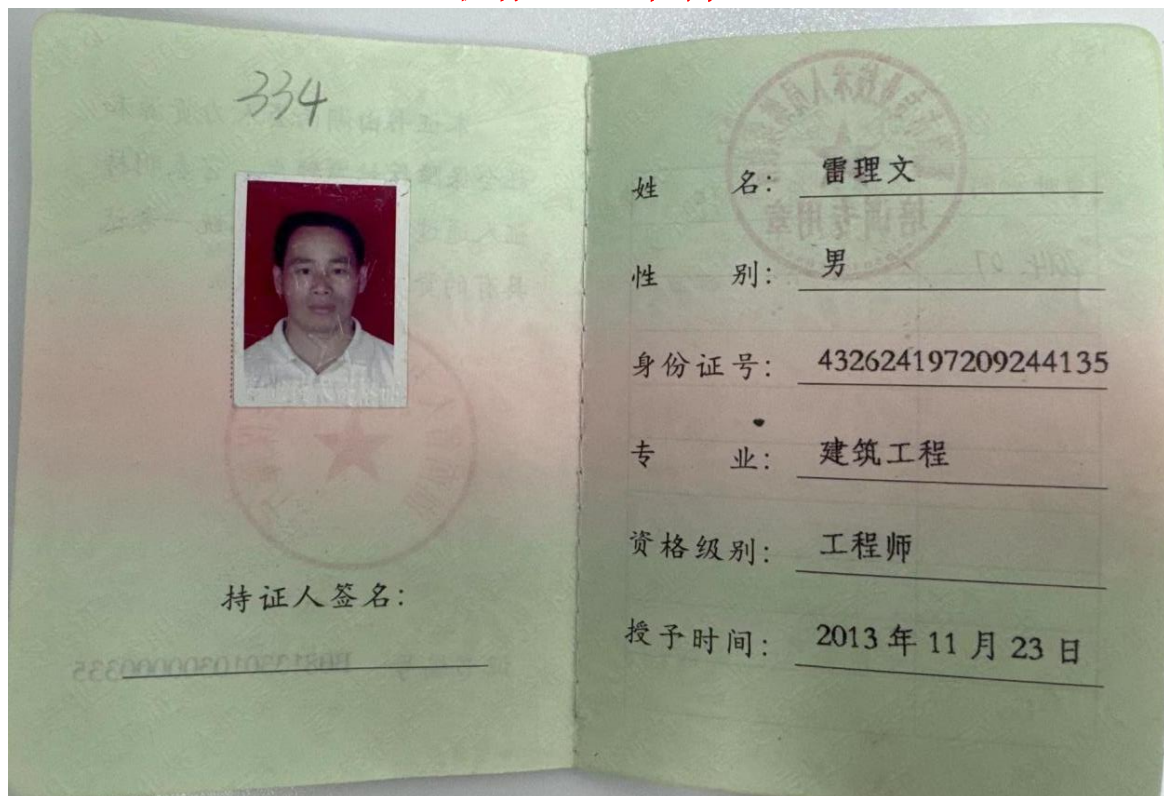 334
持证人签名：
姓 名： 雷理文
性 别： 男
身份证号： 432624197209244135
专 业： 建筑工程
资格级别： 工程师
授予时间： 2013 年 11 月 23 日
培训专用章